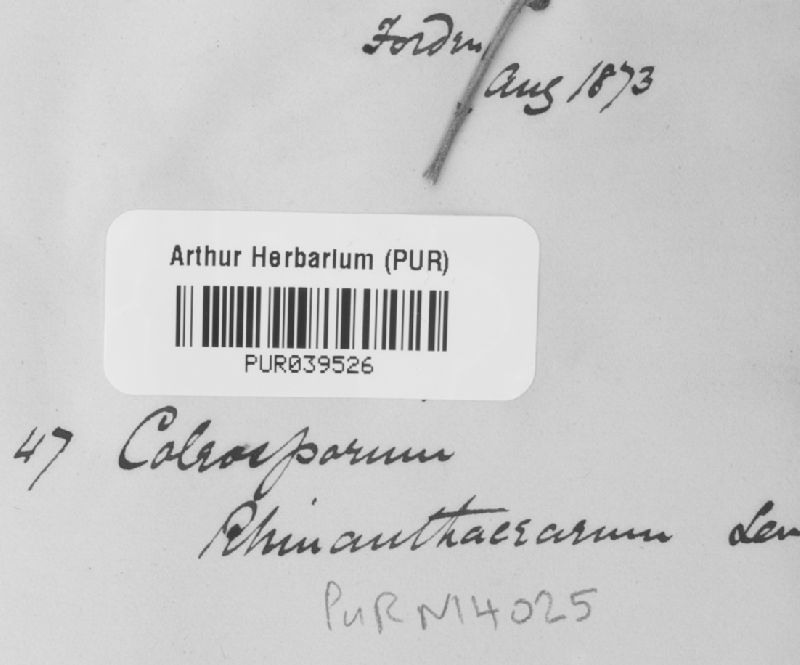 Forden
Aug 1873
Arthur Herbarium (PUR)
PUR039526
47 Coleosporum
Rhinanthacearum Lev
PUR N14025